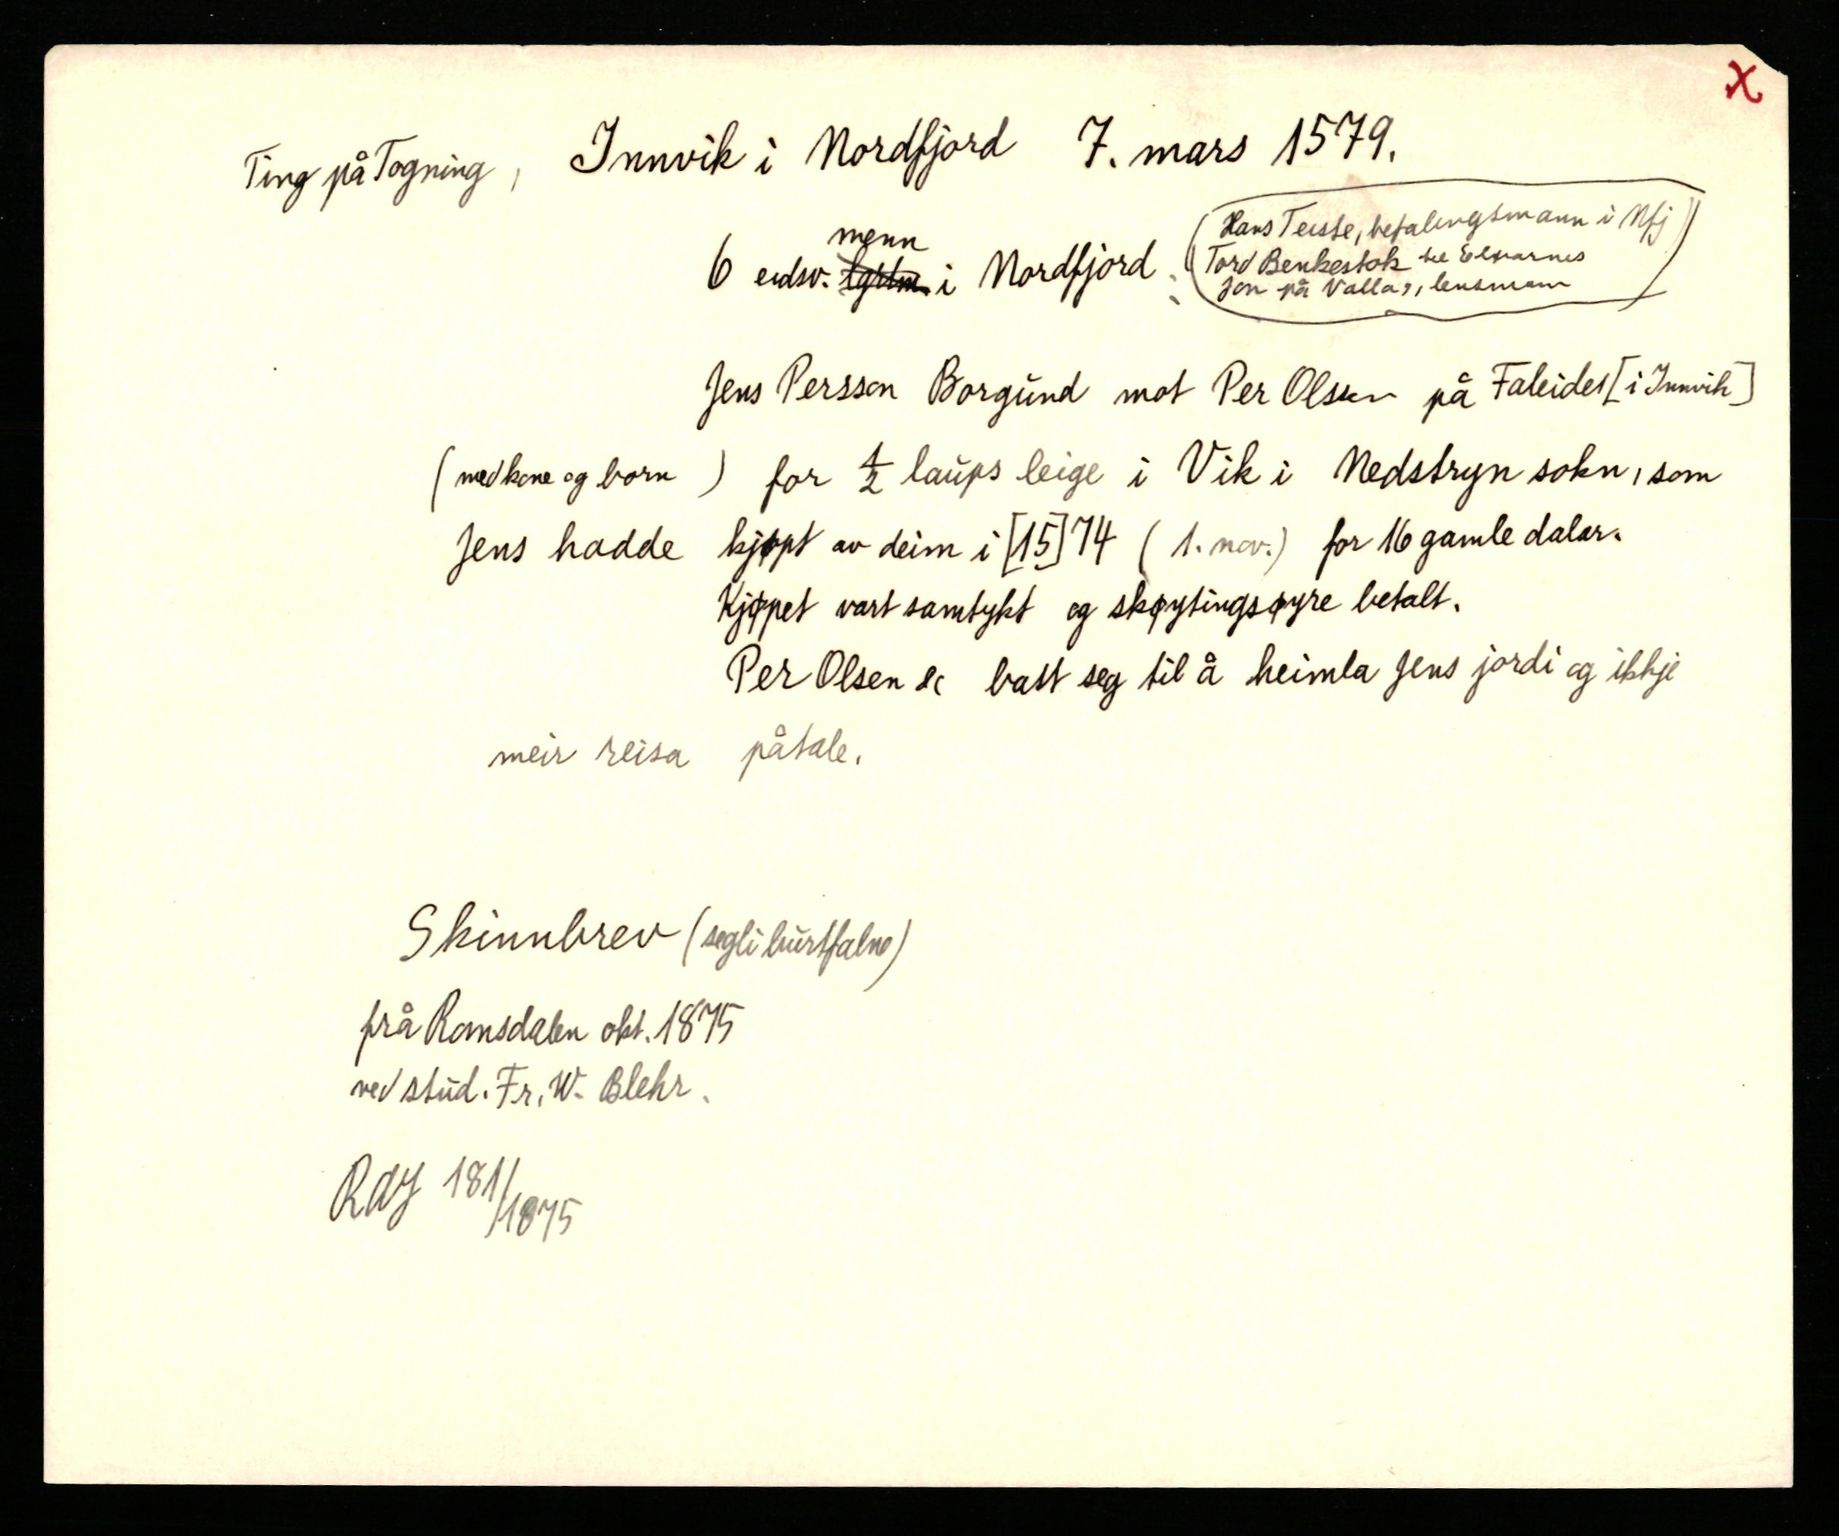 x
Ting på Togning, Innvik i Nordfjord 7. mars 1579.
6 eidsv. menn i Nordfjord : (Hans Teiste, befalingsmann i Nfj
Tord Benkestok
Jon på Valla, lensmann)
Jens Persson Borgund mot Per Olsen på Faleide [i Innvik]
(med kone og born) for 1/2 laups leige i Vik i Nedstryn sokn, som
Jens hadde kjøpt av deim i [15]74 (1. nov.) for 16 gamle dalar.
Kjøpet vart samtykt og skøytingsøyre betalt.
Per Olsen &c batt seg til å heimla Jens jordi og ikkje
meir reisa påtale.
Skinnbrev (segli burtfalne)
frå Romsdalen okt. 1875
ved stud. Fr. W. Blehr.
181/1875